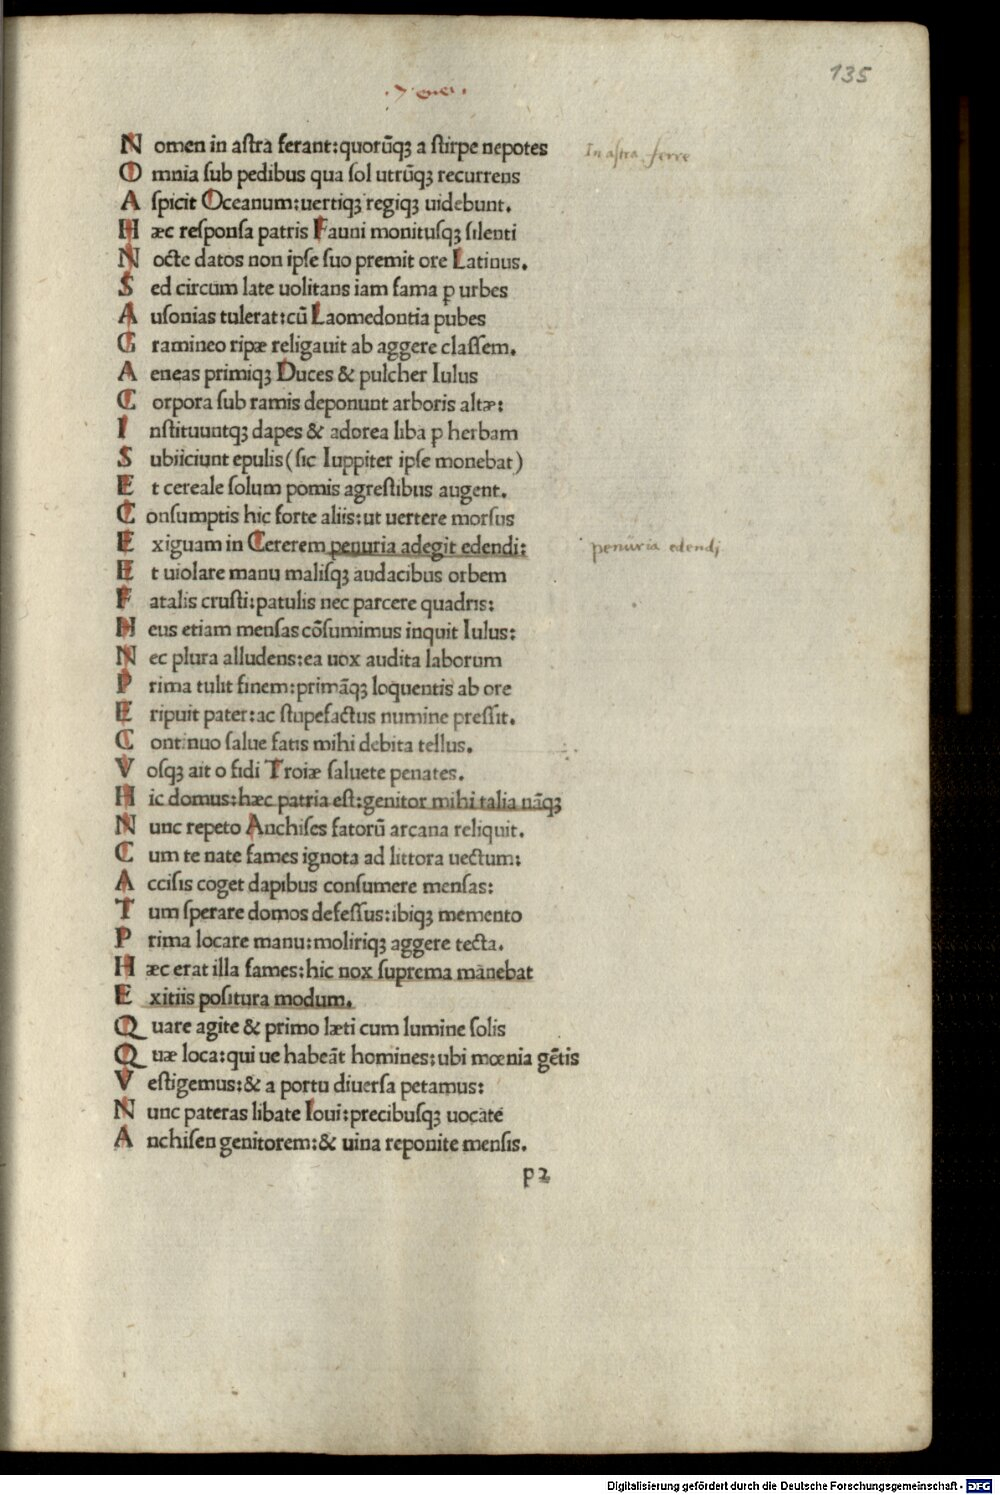 135
.7 enei.
N omen in astra ferant:quorūqꝫ a stirpe nepotes
In astra ferre
O mnia sub pedibus qua sol utrūqꝫ recurrens
A spicit Oceanum:uertiqꝫ regiqꝫ uidebunt.
H æc responsa patris Fauni monitusqꝫ silenti
N octe datos non ipse suo premit ore Latinus.
S ed circum late uolitans iam fama ꝑ urbes
A usonias tulerat:cū Laomedontia pubes
G ramineo ripæ religauit ab aggere classem.
A eneas primiqꝫ Duces & pulcher Iulus
C orpora sub ramis deponunt arboris altæ:
I nstituuntqꝫ dapes & adorea liba ꝑ herbam
S ubiiciunt epulis (sic Iuppiter ipse monebat)
E t cereale solum pomis agrestibus augent.
C onsumptis hic forte aliis:ut uertere morsus
E xiguam in Cererem penuria adegit edendi:
penuria edendj
E t uiolare manu malisqꝫ audacibus orbem
F atalis crusti:patulis nec parcere quadris:
H eus etiam mensas cōsumimus inquit Iulus:
N ec plura alludens:ea uox audita laborum
P rima tulit finem:primāqꝫ loquentis ab ore
E ripuit pater:ac stupefactus numine pressit.
C ontinuo salue fatis mihi debita tellus.
V osqꝫ ait o fidi Troiæ saluete penates.
H ic domus:hæc patria est:genitor mihi talia nāqꝫ
N unc repeto Anchises fatorū arcana reliquit.
C um te nate fames ignota ad littora uectum:
A ccisis coget dapibus consumere mensas:
T um sperare domos defessus:ibiqꝫ memento
P rima locare manu:moliriqꝫ aggere tecta.
H æc erat illa fames:hic nox suprema manebat
E xitiis positura modum.
Q uare agite & primo læti cum lumine solis
Q uæ loca:qui ue habeāt homines:ubi mœnia gētis
V estigemus:& a portu diuersa petamus:
N unc pateras libate Ioui:precibusqꝫ uocate
A nchisen genitorem:& uina reponite mensis.
p2
Digitalisierung gefördert durch die Deutsche Forschungsgemeinschaft - DFG